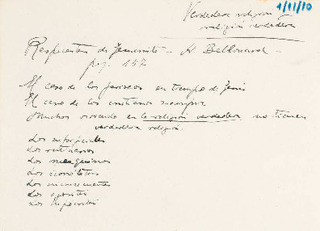 1/11/10
Verdadera religión
religión verdadera
Respuestas de
pag. 157
El caso de los fariseos en tiempo de Jesús
El caso de los cristianos siempre
Muchos viviendo en la religión verdadera no tienen
verdadera religión.
Los superficiales
Los rutinarios
Los
Los
Los inconsecuentes
Los egoistas
Los hipócritas